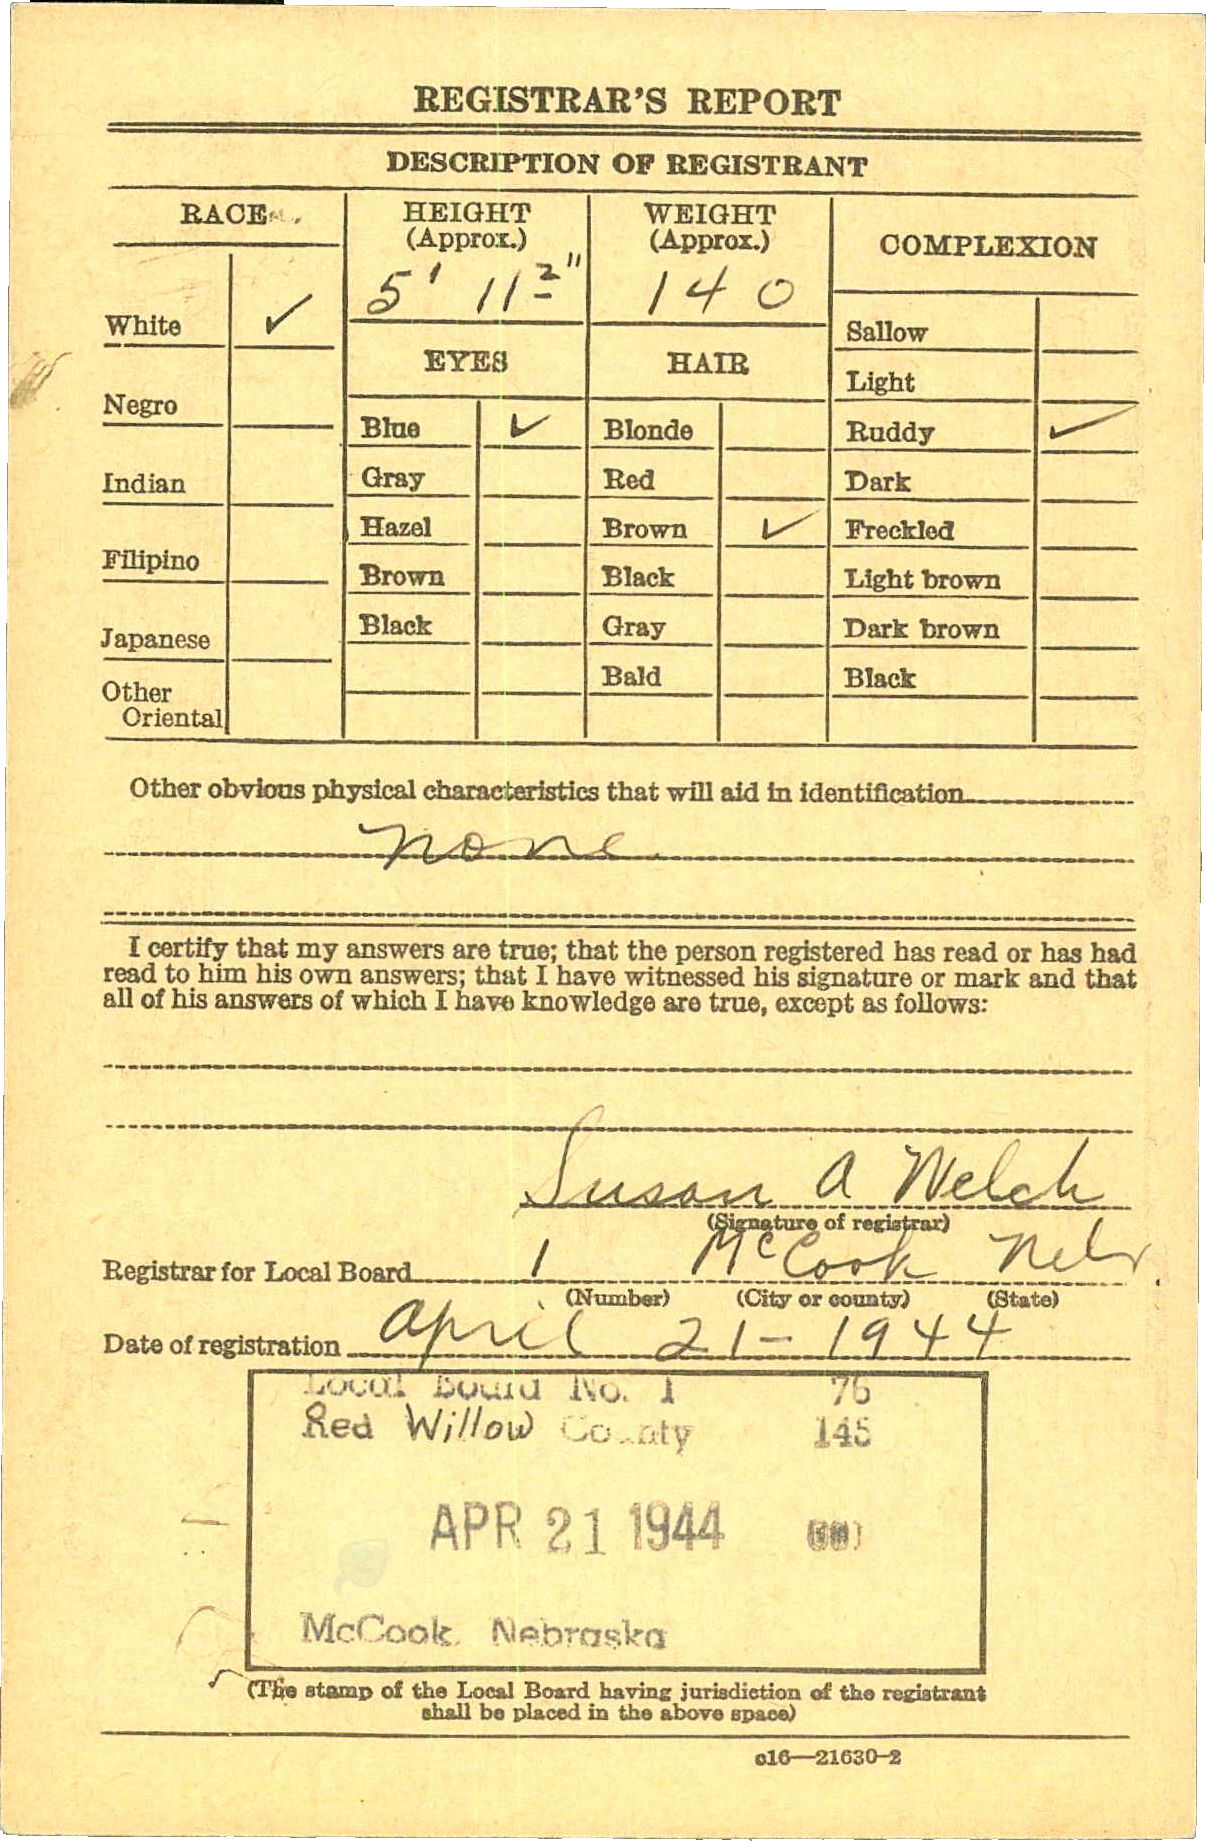 REGISTRAR'S REPORT
DESCRIPTION OF REGISTRANT
RACE
HEIGHT
(Approx.)
5' 11 2"
WEIGHT
(Approx.)
140
COMPLEXION
White ✓
Negro
Indian
Filipino
Japanese
Other
Oriental
EYES
Blue ✓
Gray
Hazel
Brown
Black
HAIR
Blonde
Red
Brown ✓
Black
Gray
Bald
Sallow
Light
Ruddy ✓
Dark
Freckled
Light brown
Dark brown
Black
Other obvious physical characteristics that will aid in identification
none
I certify that my answers are true; that the person registered has read or has had
read to him his own answers; that I have witnessed his signature or mark and that
all of his answers of which I have knowledge are true, except as follows:
Susan A Welch
(Signature of registrar)
Registrar for Local Board 1 McCook Nebr.
(Number) (City or county) (State)
Date of registration April 21-1944
Local Board No. 1 76
Red Willow County 145
APR 21 1944
McCook, Nebraska
(The stamp of the Local Board having jurisdiction of the registrant
shall be placed in the above space)
c16—21630-2